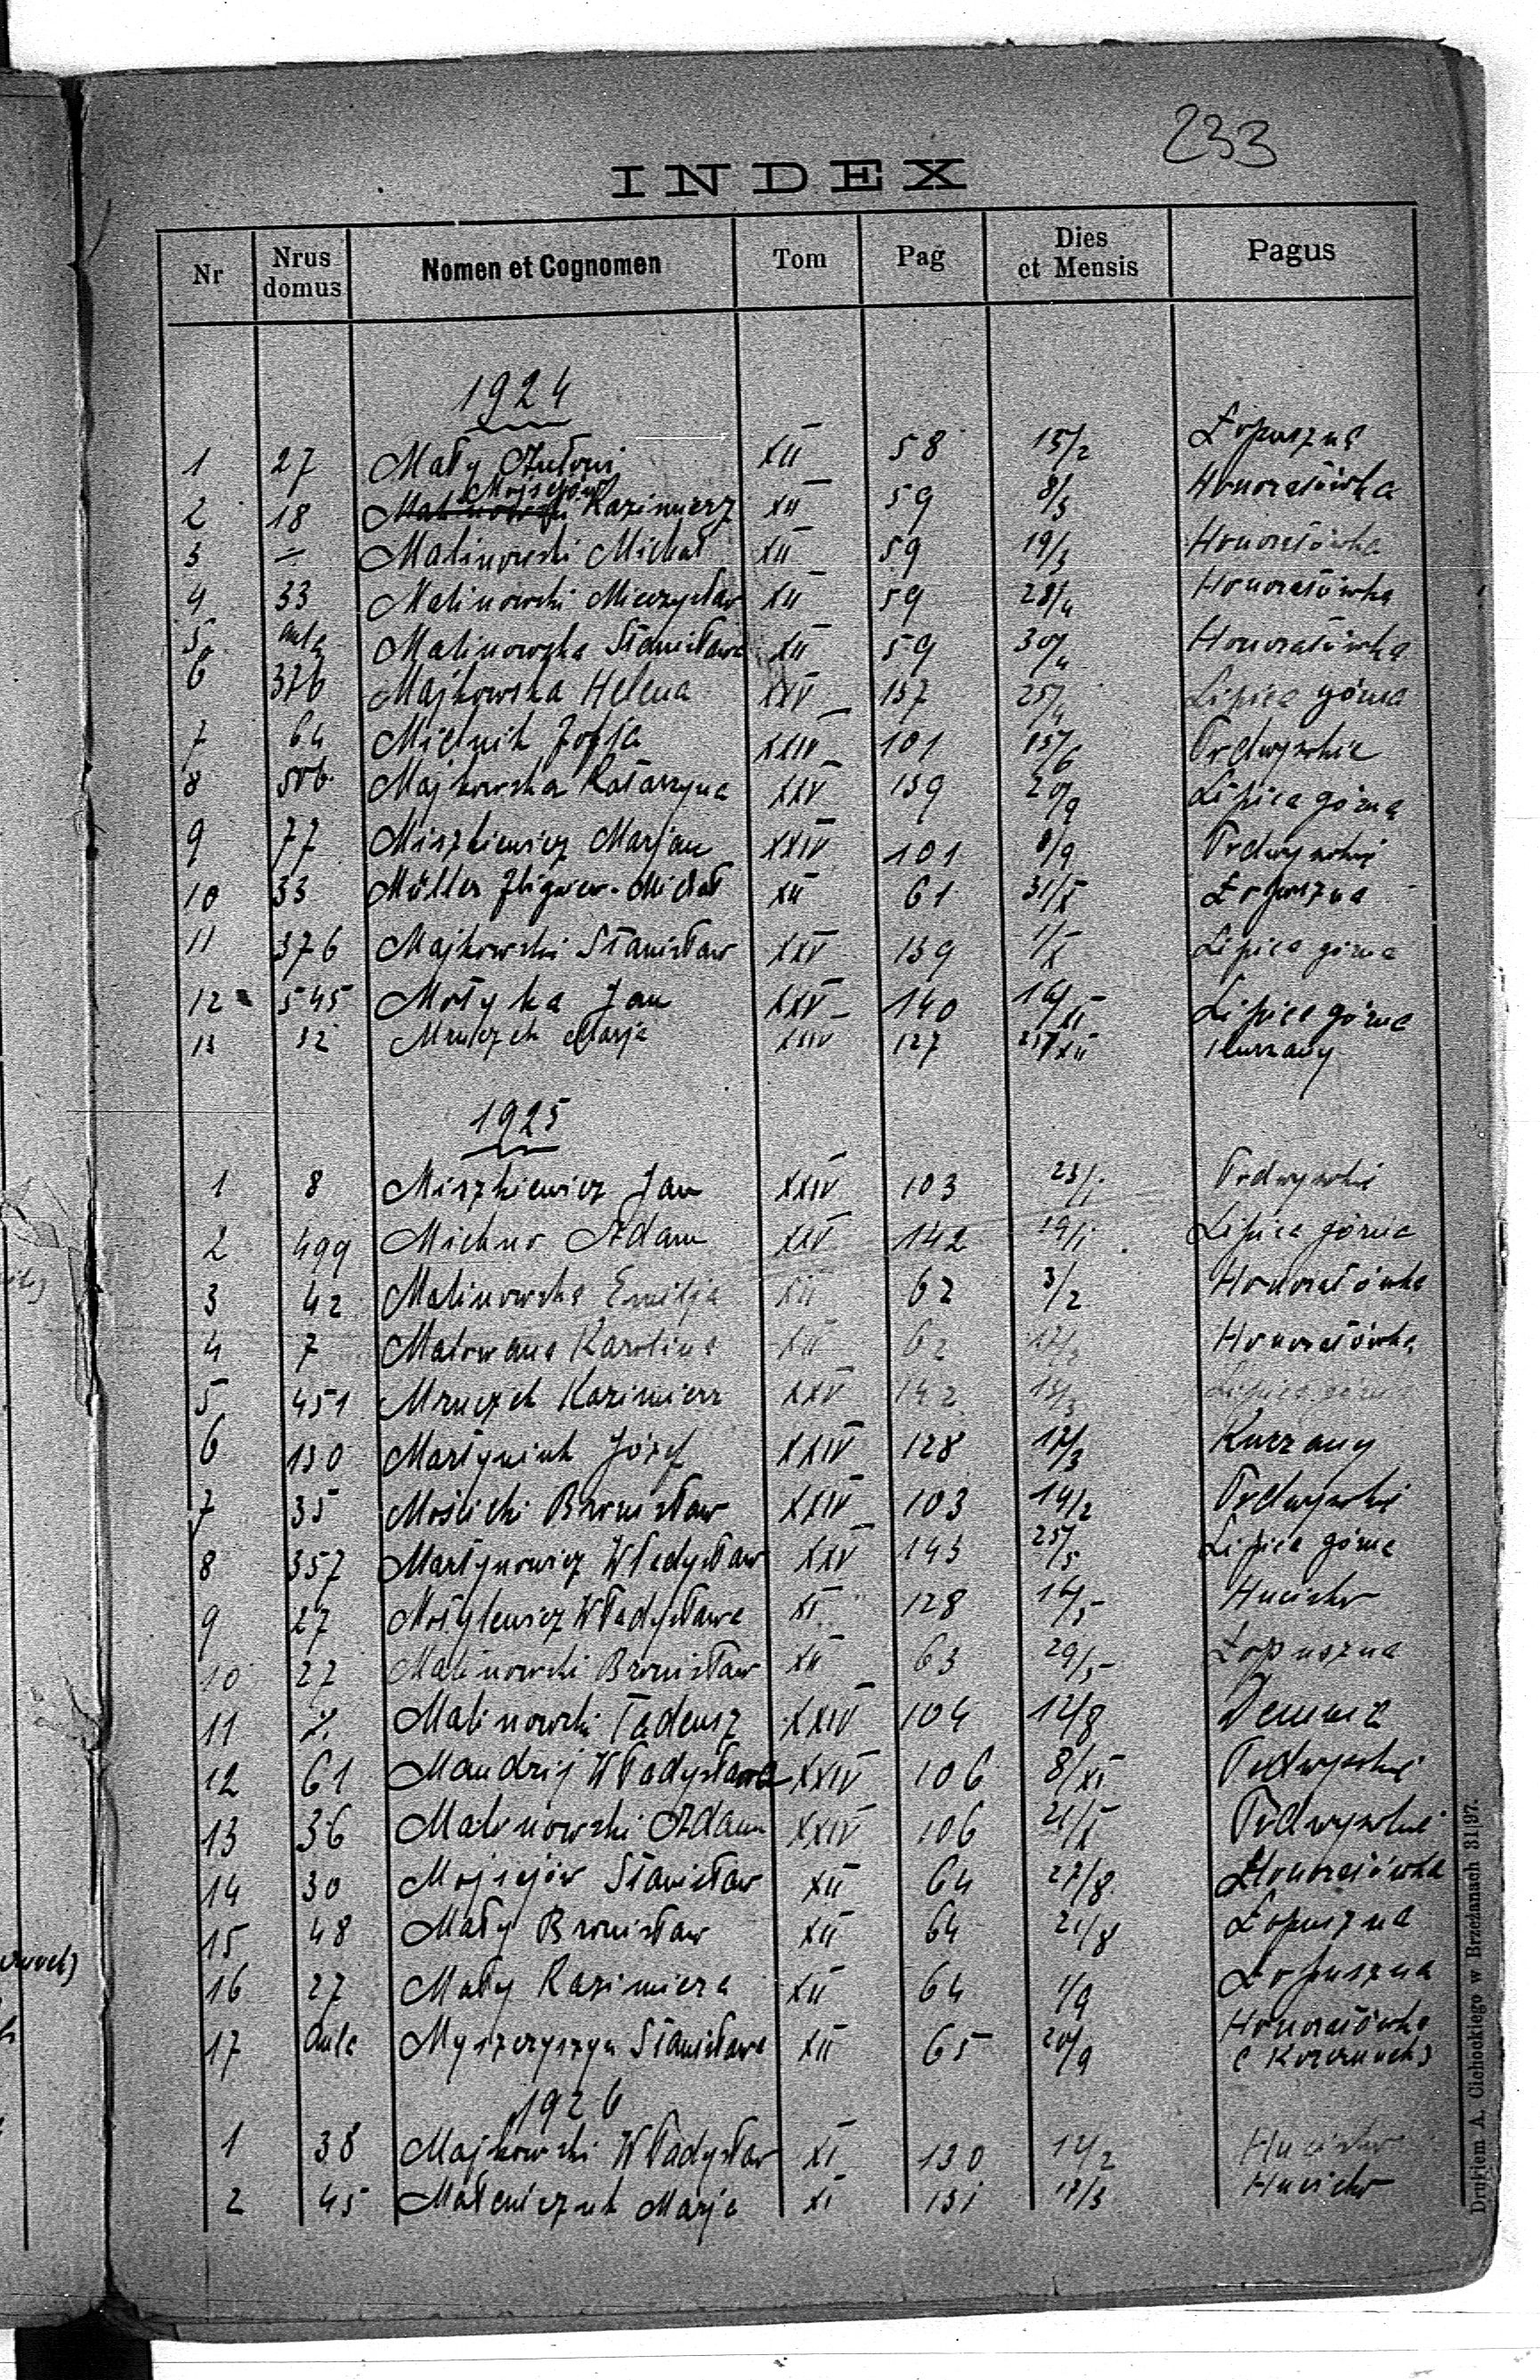 233
INDEX
Nr Nrus domus Nomen et Cognomen Tom Pag Dies et Mensis Pagus
1924
1 27 Mały Antoni XII 58 15/2 Łopuszna
Mojsejów
2 18 Malinowski Kazimierz XII 59 8/3 Honoratówka
3 – Malinowski Michał XII 59 19/3 Honoratówka
4 33 Malinowski Mieczysław XII 59 28/4 Honoratówka
5 aula Malinowska Stanisława XII 59 30/4 Honoratówka
6 376 Majkowska Helena XXV 137 25/4 Lipica górna
7 64 Mielnik Zofja XXIV 101 15/6 Podwysokie
8 506 Majkowska Katarzyna XXV 139 20/9 Lipica górna
9 77 Miszkiewicz Marjan XXIV 101 8/9 Podwysokie
10 33 Müller Zbigniew-Michał XII 61 31/X Łopuszna
11 376 Majkowski Stanisław XXV 139 1/X Lipica górna
12 545 Motyka Jan XXV 140 16/XI Lipica górna
13 32 Mruczek Marja XXIV 127 25/XII Kurzany
1925
1 8 Miszkiewicz Jan XXIV 103 23/1 Podwysokie
2 499 Michno Adam XXV 142 19/1 Lipica górna
3 42 Malinowska Emilja XII 62 3/2 Honoratówka
4 7 Malowana Karolina XII 62 17/2 Honoratówka
5 451 Mruczek Kazimierz XXV 142 13/3 Lipica górna
6 130 Martyniuk Józef XXIV 128 17/3 Kurzany
7 35 Mościcki Bronisław XXIV 103 14/2 Podwysokie
8 357 Martynowicz Władysław XXV 143 25/5 Lipica górna
9 27 Motylewicz Władysława XI 128 16/5 Hucisko
10 27 Malinowski Bronisław XII 63 29/5 Łopuszna
11 Malinowski Tadeusz XXIV 104 12/8 Demnia
12 61 Mandzij Władysława XXIV 106 8/XI Podwysokie
13 36 Malinowski Adam XXIV 106 21/X Podwysokie
14 30 Mojsejów Stanisław XII 64 27/8 Honoratówka
15 48 Mały Bronisław XII 64 21/8 Łopuszna
16 27 Mały Kazimiera XII 64 1/9 Łopuszna
17 aula Myszczyszyn Stanisława XII 65 20/9 Honoratówka
1926
1 38 Majkowski Władysław XI 130 12/2 Hucisko
2 45 Mateńczuk Marja XI 131 17/3 Hucisko
Drukiem A. Cichockiego w Brzeżanach 31|97.